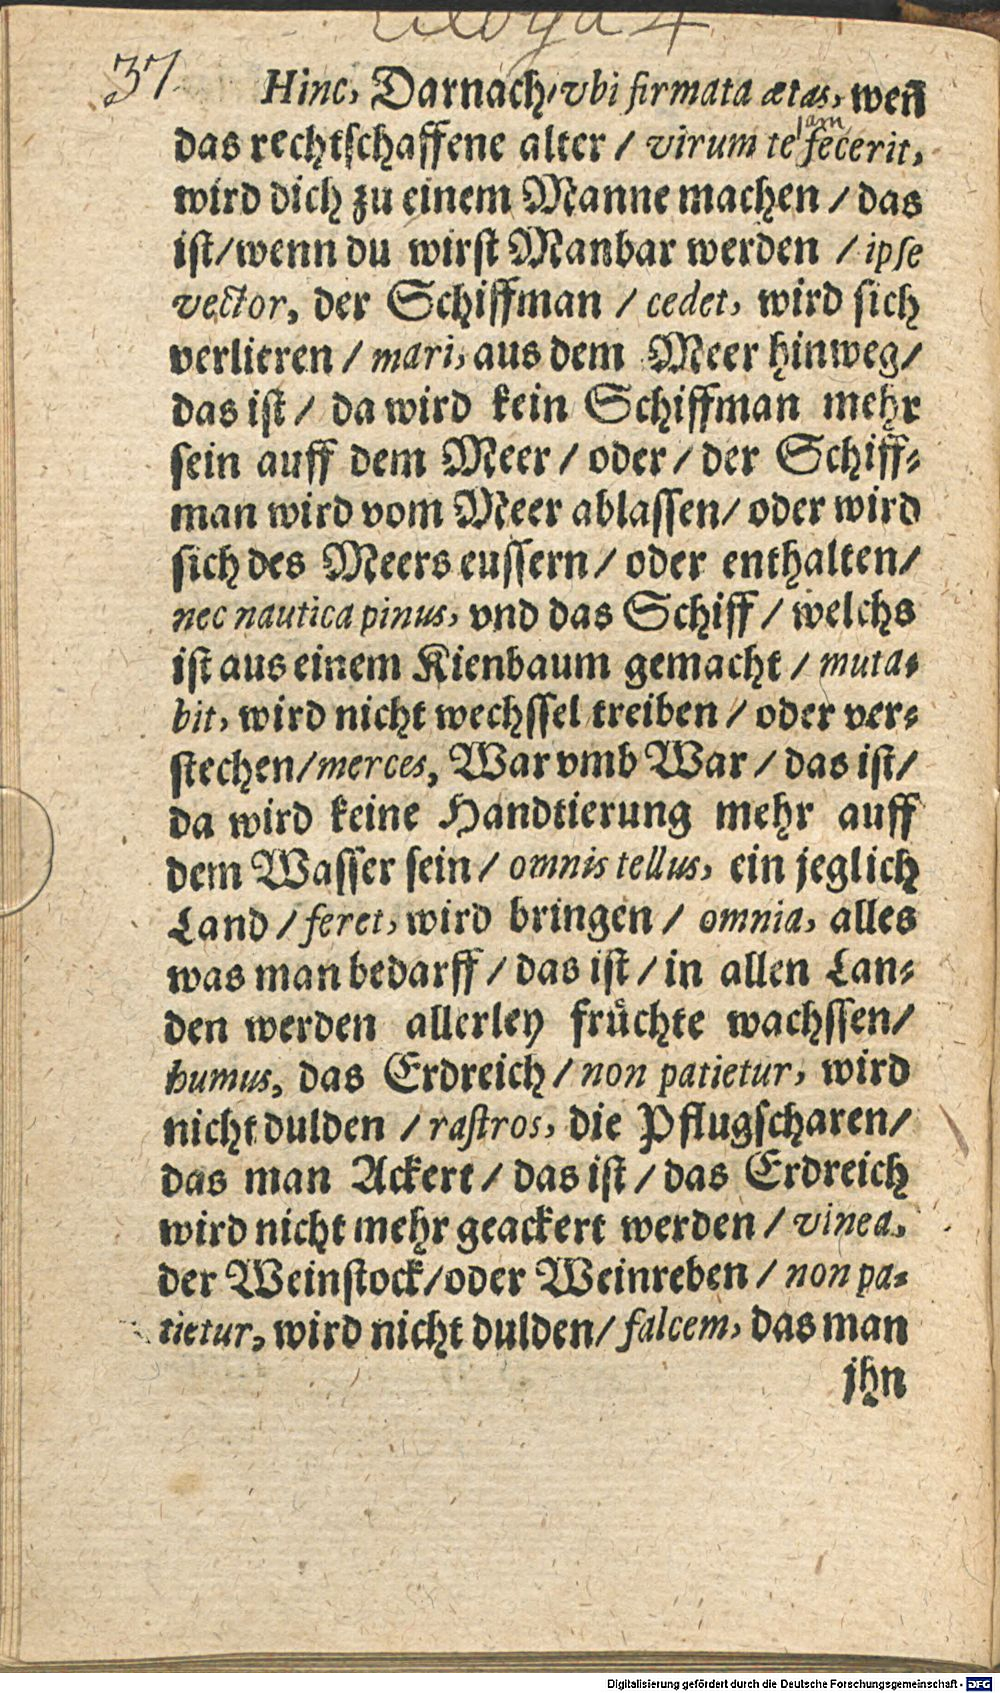 Ecloga 4
37 Hinc, Darnach/vbi firmata ætas, weñ
jam
das rechtschaffene alter / virum te fecerit,
wird dich zu einem Manne machen / das
ist/wenn du wirst Manbar werden / ipse
vector, der Schiffman / cedet, wird sich
verlieren / mari, aus dem Meer hinweg/
das ist / da wird kein Schiffman mehr
sein auff dem Meer / oder / der Schiff-
man wird vom Meer ablassen/ oder wird
sich des Meers eussern / oder enthalten/
nec nautica pinus, vnd das Schiff / welchs
ist aus einem Kienbaum gemacht / muta-
bit, wird nicht wechssel treiben / oder ver-
stechen/merces, War vmb War / das ist/
da wird keine Handtierung mehr auff
dem Wasser sein / omnis tellus, ein jeglich
Land / feret, wird bringen / omnia, alles
was man bedarff / das ist / in allen Lan-
den werden allerley fruͤchte wachssen/
humus, das Erdreich / non patietur, wird
nicht dulden / rastros, die Pflugscharen/
das man Ackert / das ist / das Erdreich
wird nicht mehr geackert werden / vinea,
der Weinstock/oder Weinreben / non pa-
tietur, wird nicht dulden/ falcem, das man
jhn
Digitalisierung gefördert durch die Deutsche Forschungsgemeinschaft - DFG